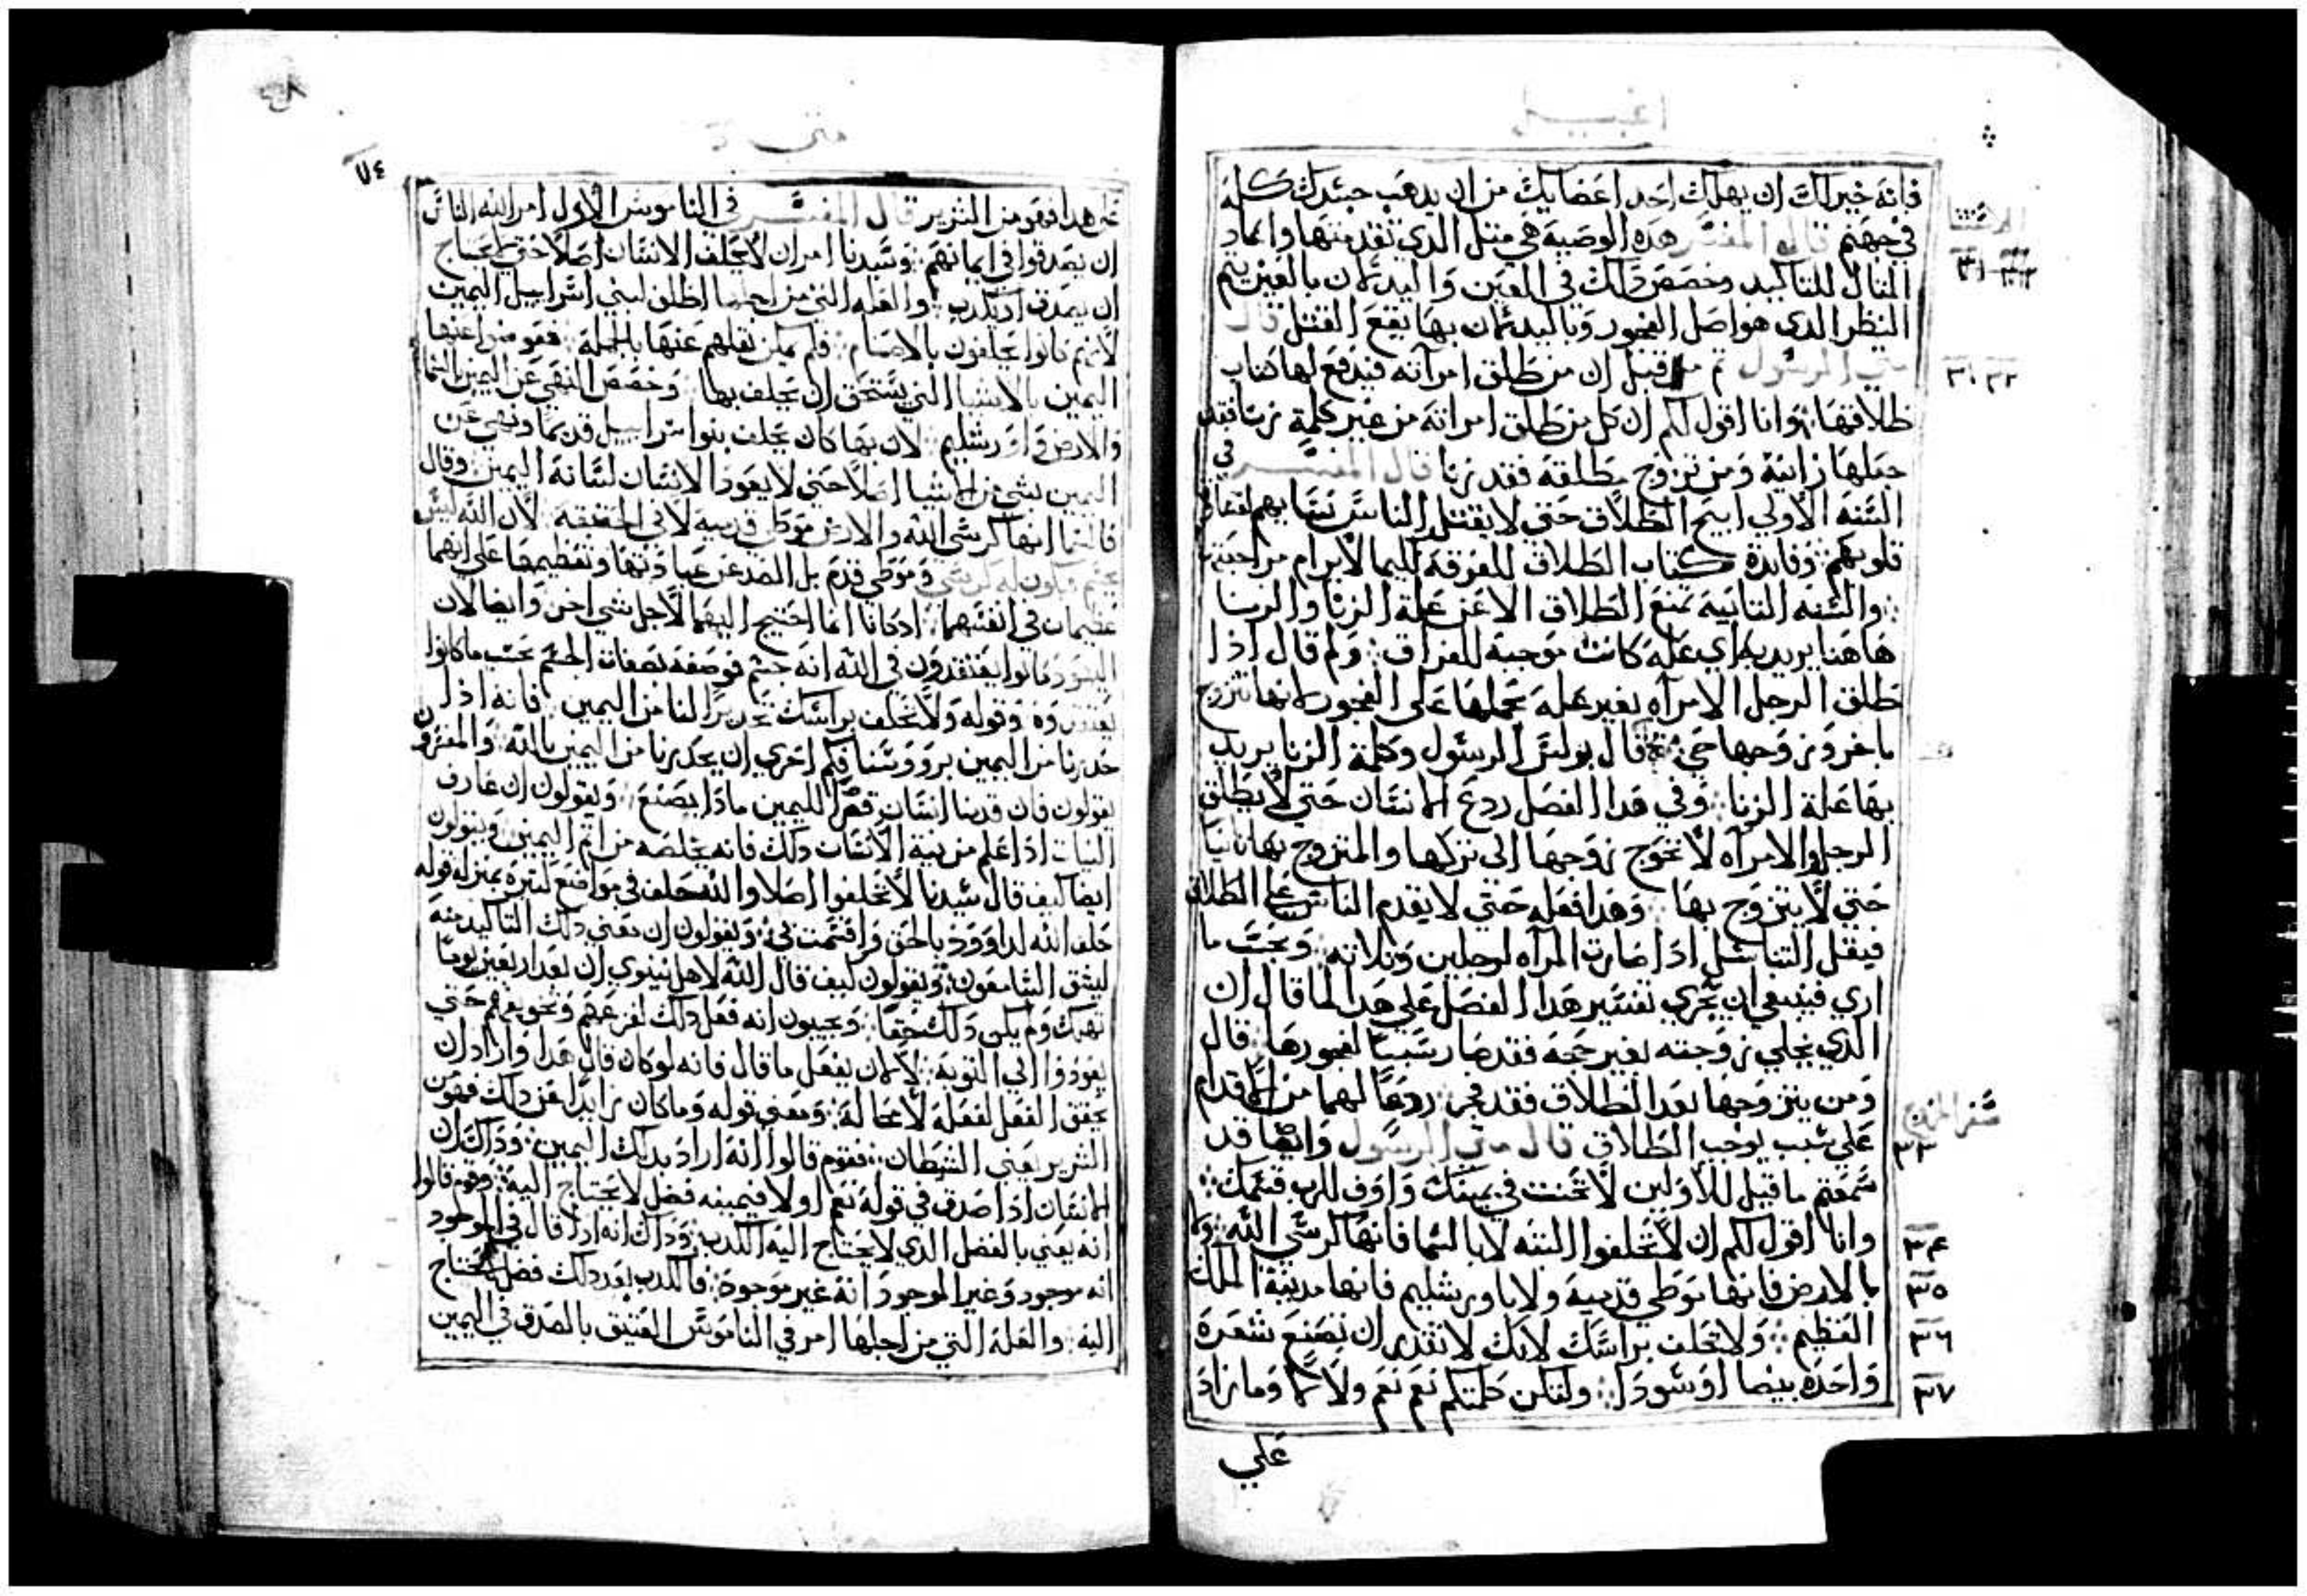 انجيل
فانه خير لك ان يهلك احد اعضايك من ان يدهب جسدك كله
في جهنم قال المفسر هده الوصيه هي متل الدي تقدمتها واعاد
المتال للتاكيد وخصص دلك في العين واليد لان بالعين يتم
النظر الدي هو اصل الفجور وباليد لان بها يقع القتل قال
متي الرسول قيل ان من طلق امراته فيدفع لها كتاب
طلاقها وانا اقول لكم ان كل من طلق امراته من غير كلمة زنا فقد
جعلها زانية ومن تزوج مطلقة فقد زنا قال المفسر في
السنة الاولي ابيح الطلاق حتي لا يقتل الناس نسايهم لقساوة
قلوبهم وفايدة كتاب الطلاق للفرقة
والسنه التانيه تمنع الطلاق الا عن علة الزنا والزنا
هاهنا يريد به اي علة كانت موجبة للفراق ولم قال ادا
طلق الرجل الامراه بغير عله يحملها علي الفجور لانها تتزوج
باخر وزوجها حي قال بولس الرسول وكلمة الزنا يريد
بها علة الزنا وفي هدا الفصل ردع الانسان حتي لا يطلق
الرجل والامراه لا تحوج زوجها الي تركها والمتزوج بها تانيا
حتي لا يتزوج بها وهدا فعله حتي لا يقدم الناس علي الطلاق
فيقل التناسل ادا صارت المراه لرجلين وتلاته وبحسب ما
اري فينبغي ان يجري تفسير هدا الفصل علي هدا لما قال ان
الدي يخلي زوجته بغير حجة فقد صار سببا لفجورها قال
ومن يتزوجها بعد الطلاق فقد فجر ردعا لهما من الاقدام
علي سبب يوجب الطلاق قال متي الرسول وايضا قد
سمعتم ما قيل للاولين لا تحنت في يمينك واوف للرب قسمك
وانا اقول لكم ان لا تحلفوا البته لا بالسما فانها كرسي الله ولا
بالارض فانها موطي قدميه ولا باورشليم فانها مدينة الملك
العظيم ولا تحلف براسك لانك لا تقدر ان تصنع شعرة
واحده بيضا او سودا ولتكن كلمتكم نعم نعم ولا لا وما زاد
علي
٣١ ٣٢
٣٣
٣٤
٣٥
٣٦
٣٧
متي
٧٤
علي هدا فهو من الشرير قال المفسر في الناموس الاول امر الله الناس
ان يصدقوا في ايمانهم وسيدنا امر ان لا يحلف الانسان اصلا حتي يحتاج
ان يصدق او يكدب والعله التي من اجلها اطلق لبني اسراييل اليمين
لانهم كانوا يحلفون بالاصنام ولم يمكن نقلهم عنها بالجملة فعوض عنها
اليمين بالاشيا التي يستحق ان يحلف بها وخصص النهي عن اليمين بالسما
والارض واورشليم لان بها كان يحلف بنوا اسراييل قديما ونهي عن
اليمين بشي من الاشيا اصلا حتي لا يعود الانسان لسانه اليمين وقال
في السما انها كرسي الله والارض موطي قدميه لا في الحقيقه لان الله ليس
بجسم فيكون له كرسي وموطي قدم بل ليصد عن عبادتها وتعظيمها علي انهما
عظيمات في انفسهما اد كانا انما احتيج اليهما لاجل شي اخر وايضا لان
اليهود كانوا يعتقدون في الله انه جسم فوصفه بصفات الجسم بحسب ما كانوا
يعتقدوه وقوله ولا تحلف براسك تحديرا لنا من اليمين فانه ادا
حدرنا من اليمين برووسنا فكم احري ان يحدرنا من اليمين بالله
يقولون فان قدمنا انسان قهرا لليمين مادا يصنع ويقولون ان عارف
النيات ادا علم من نية الانسان دلك فانه يخلصه من اتم اليمين ويقولون
ايضا كيف قال سيدنا لا تحلفوا اصلا والله حلف في مواضع كتيرة بمنزلة قوله
حلف الله لداوود بالحق واقسمت بي ويقولون ان معني دلك التاكيد منه
ليتق السامعون ويقولون كيف قال الله لاهل نينوي ان بعد اربعين يوما
تهلك ولم يكن دلك حقا ويجيبون انه فعل دلك لفزعهم وتخويفهم حتي
يعودوا الي التوبة لا لان يفعل ما قال فانه لو كان قال هدا واراد ان
يحقق الفعل لفعله لا محالة ومعني قوله وما كان زايدا عن دلك فهو من
الشرير يعني الشيطان فقوم قالوا انه اراد بدلك اليمين وداك ان
الانسان ادا صدق في قولة نعم او لا فيمينه فضل لا يحتاج اليه وقوم قالوا
انه يعني بالفضل الدي لا يحتاج اليه الكدب وداك انه ادا قال في الموجود
انه موجود وغير الموجود انه غير موجود فالكدب بعد دلك فضل لا يحتاج
اليه والعله التي من اجلها امر في الناموس العتيق بالصدق في اليمين